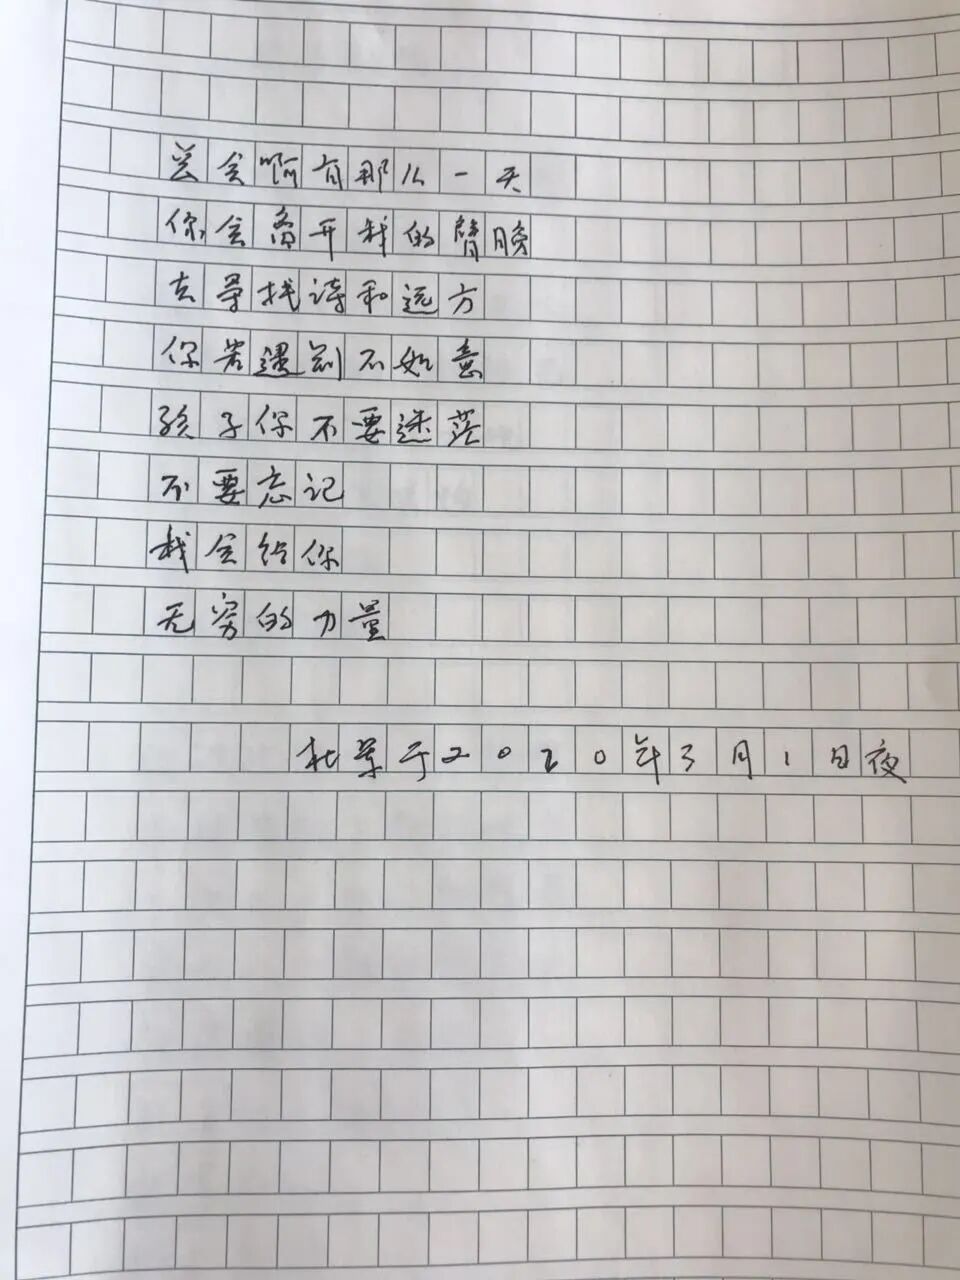 总会啊有那么一天
你会离开我的臂膀
去寻找诗和远方
你若遇到不如意
孩子你不要迷茫
不要忘记
我会给你
无穷的力量
杜草于2020年3月1日夜